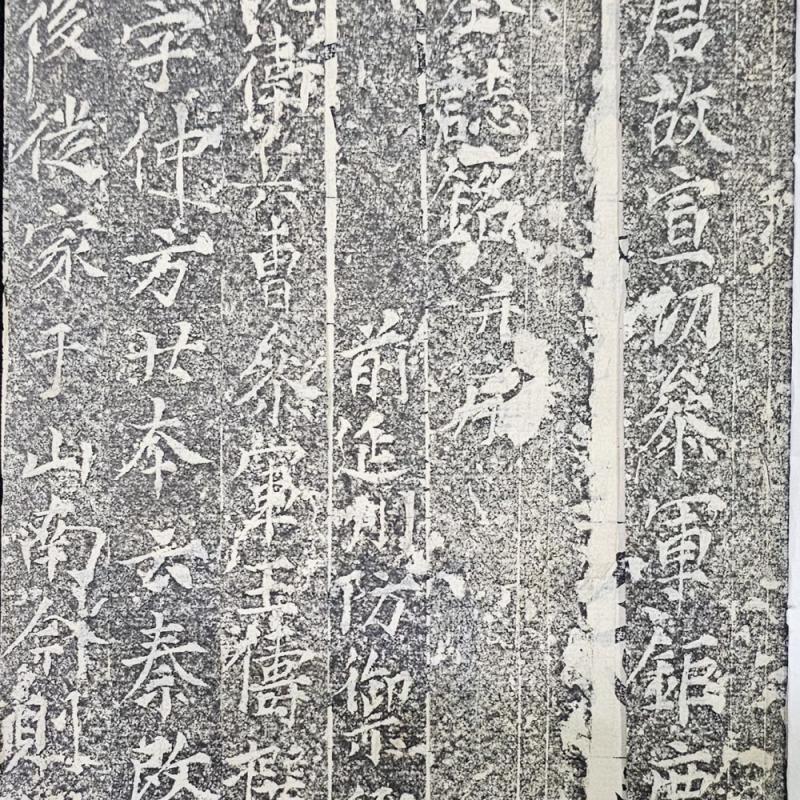 君故宣功參軍鉅鹿
誌銘并序
前延州防禦
衛兵曹參軍王
字仲方世本云秦改
後從家于山南